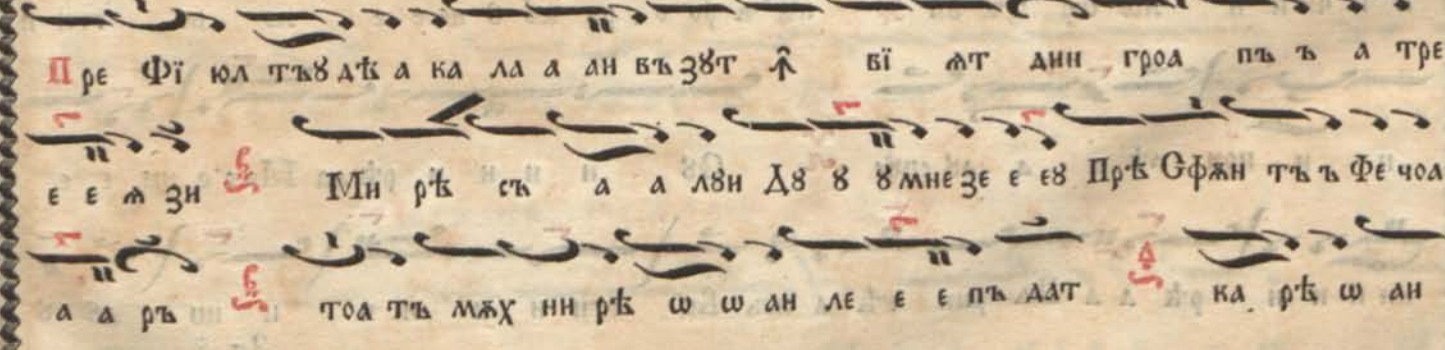 Пре Фї юл тъꙋ дѣ а ка ла а ан въ зꙋт ꙟ вї ѩт дин гроа пъ ъ а тре
е е ѩ зи Ми рѣ съ а а лꙋи Дꙋ ꙋ ꙋмне зе е еꙋ Прѣ Сфѫн тъ ъ Фе чоа
а а ръ тоа тъ мѫх ни рѣ ѡ ѡ ан ле е е пъ дат ка рѣ ѡ ан